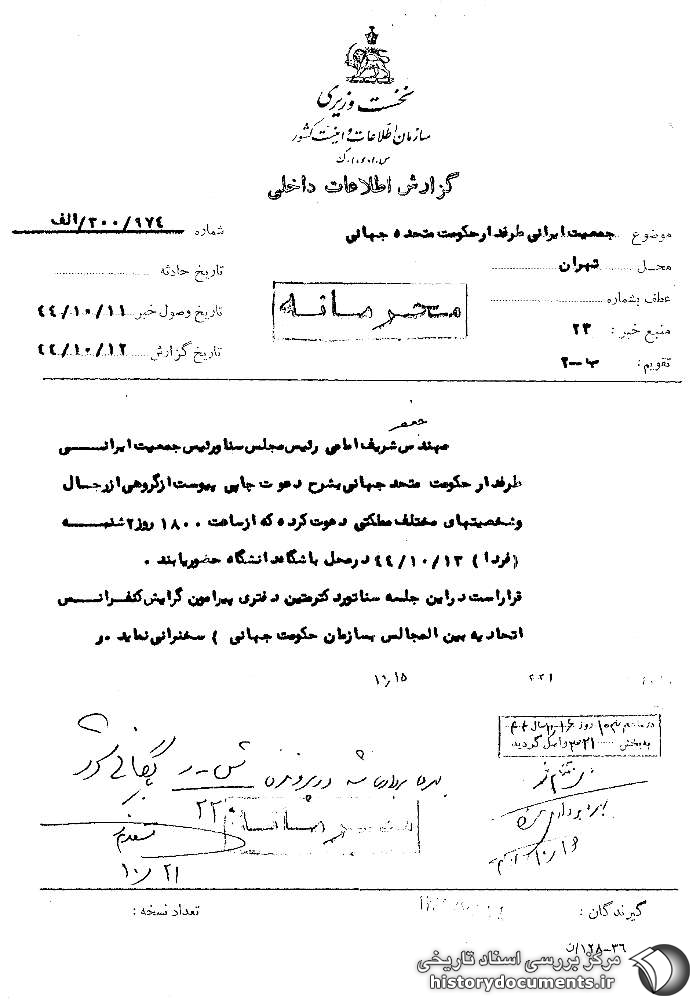 نخست وزیری
سازمان اطلاعات و امنیت کشور
س.ا.و.ا.ک
گزارش اطلاعات داخلی
موضوع جمعیت ایرانی طرفدار حکومت متحده جهانی
شماره ۳۰۰/۹۷۴/الف
محل تهران
تاریخ حادثه
عطف بشماره
تاریخ وصول خبر ۴۴/۱۰/۱۱
منبع خبر : ۲۳
تاریخ گزارش ۴۴/۱۰/۱۲
تقویم : ب-۲
محرمانه
جعفر
مهندس شریف امامی رئیس مجلس سنا و رئیس جمعیت ایرانی
طرفدار حکومت متحد جهانی بشرح دعوت چاپی پیوست از گروهی از رجال
و شخصیتهای مختلف مملکتی دعوت کرده که از ساعت ۱۸۰۰ روز ۲ شنبه
(فردا) ۴۴/۱۰/۱۳ در محل باشگاه دانشگاه حضور یابند .
قرار است در این جلسه سناتور دکتر متین دفتری پیرامون گرایش کنفرانس
اتحادیه بین المجالس بسازمان حکومت جهانی ) سخنرانی نماید . و
۱۱/۱۵
۲۲۱
بهره برداری شد در پرونده ش-ر بایگانی گردد
۲۲
محرمانه
۱۰/۲۱
گیرندگان :
تعداد نسخه :
۳۶-۱۲۸/ن
مرکز بررسی اسناد تاریخی
historydocuments.ir